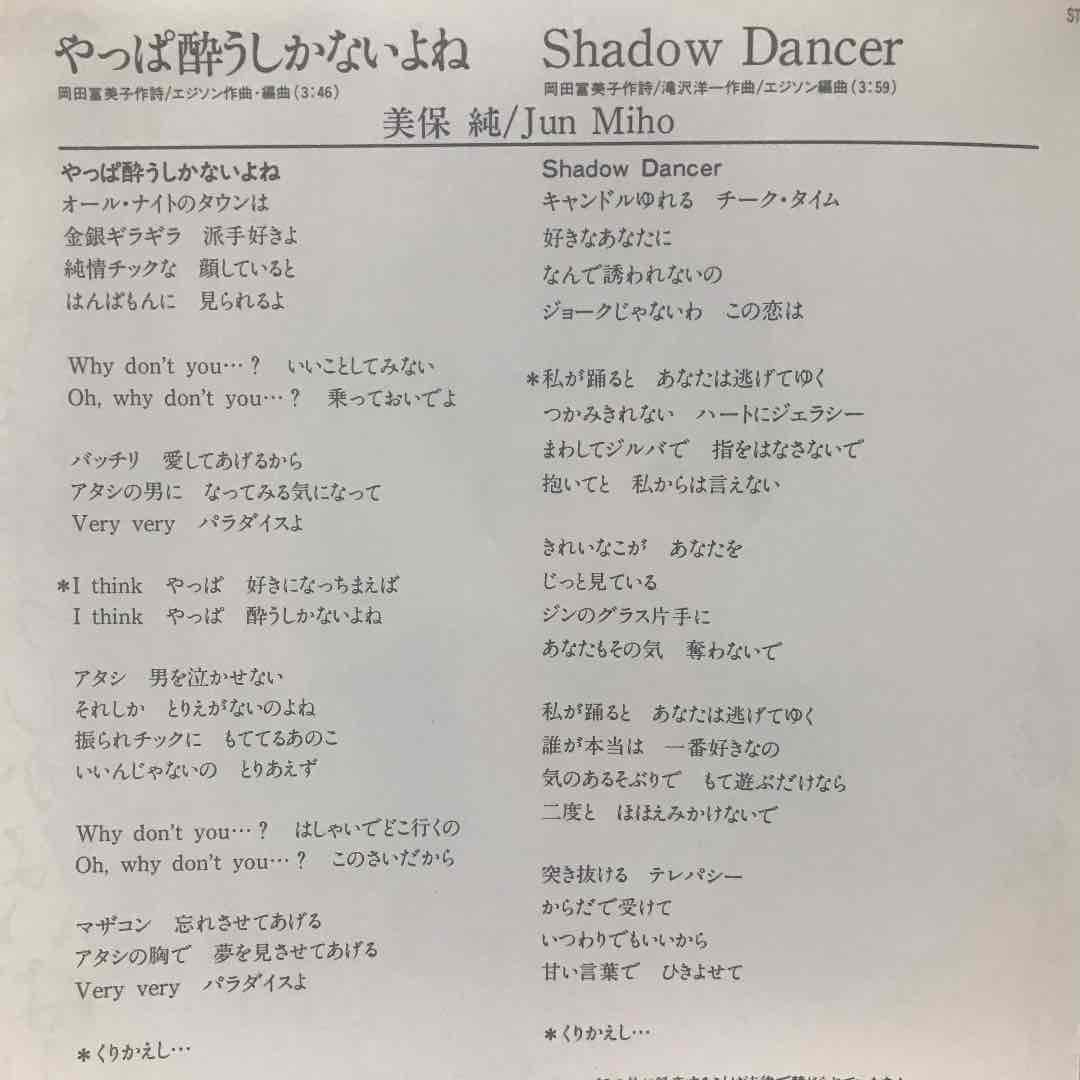 ST
やっぱ酔うしかないよね
岡田冨美子作詩/エジソン作曲・編曲(3:46)
Shadow Dancer
岡田冨美子作詩/滝沢洋一作曲/エジソン編曲(3:59)
美保 純/Jun Miho
やっぱ酔うしかないよね
オール・ナイトのタウンは
金銀ギラギラ 派手好きよ
純情チックな 顔していると
はんぱもんに 見られるよ
Why don't you…? いいことしてみない
Oh, why don't you…? 乗っておいでよ
バッチリ 愛してあげるから
アタシの男に なってみる気になって
Very very パラダイスよ
*I think やっぱ 好きになっちまえば
I think やっぱ 酔うしかないよね
アタシ 男を泣かせない
それしか とりえがないのよね
振られチックに もててるあのこ
いいんじゃないの とりあえず
Why don't you…? はしゃいでどこ行くの
Oh, why don't you…? このさいだから
マザコン 忘れさせてあげる
アタシの胸で 夢を見させてあげる
Very very パラダイスよ
*くりかえし…
Shadow Dancer
キャンドルゆれる チーク・タイム
好きなあなたに
なんで誘われないの
ジョークじゃないわ この恋は
*私が踊ると あなたは逃げてゆく
つかみきれない ハートにジェラシー
まわしてジルバで 指をはなさないで
抱いてと 私からは言えない
きれいなこが あなたを
じっと見ている
ジンのグラス片手に
あなたもその気 奪わないで
私が踊ると あなたは逃げてゆく
誰が本当は 一番好きなの
気のあるそぶりで もて遊ぶだけなら
二度と ほほえみかけないで
突き抜ける テレパシー
からだで受けて
いつわりでもいいから
甘い言葉で ひきよせて
*くりかえし…